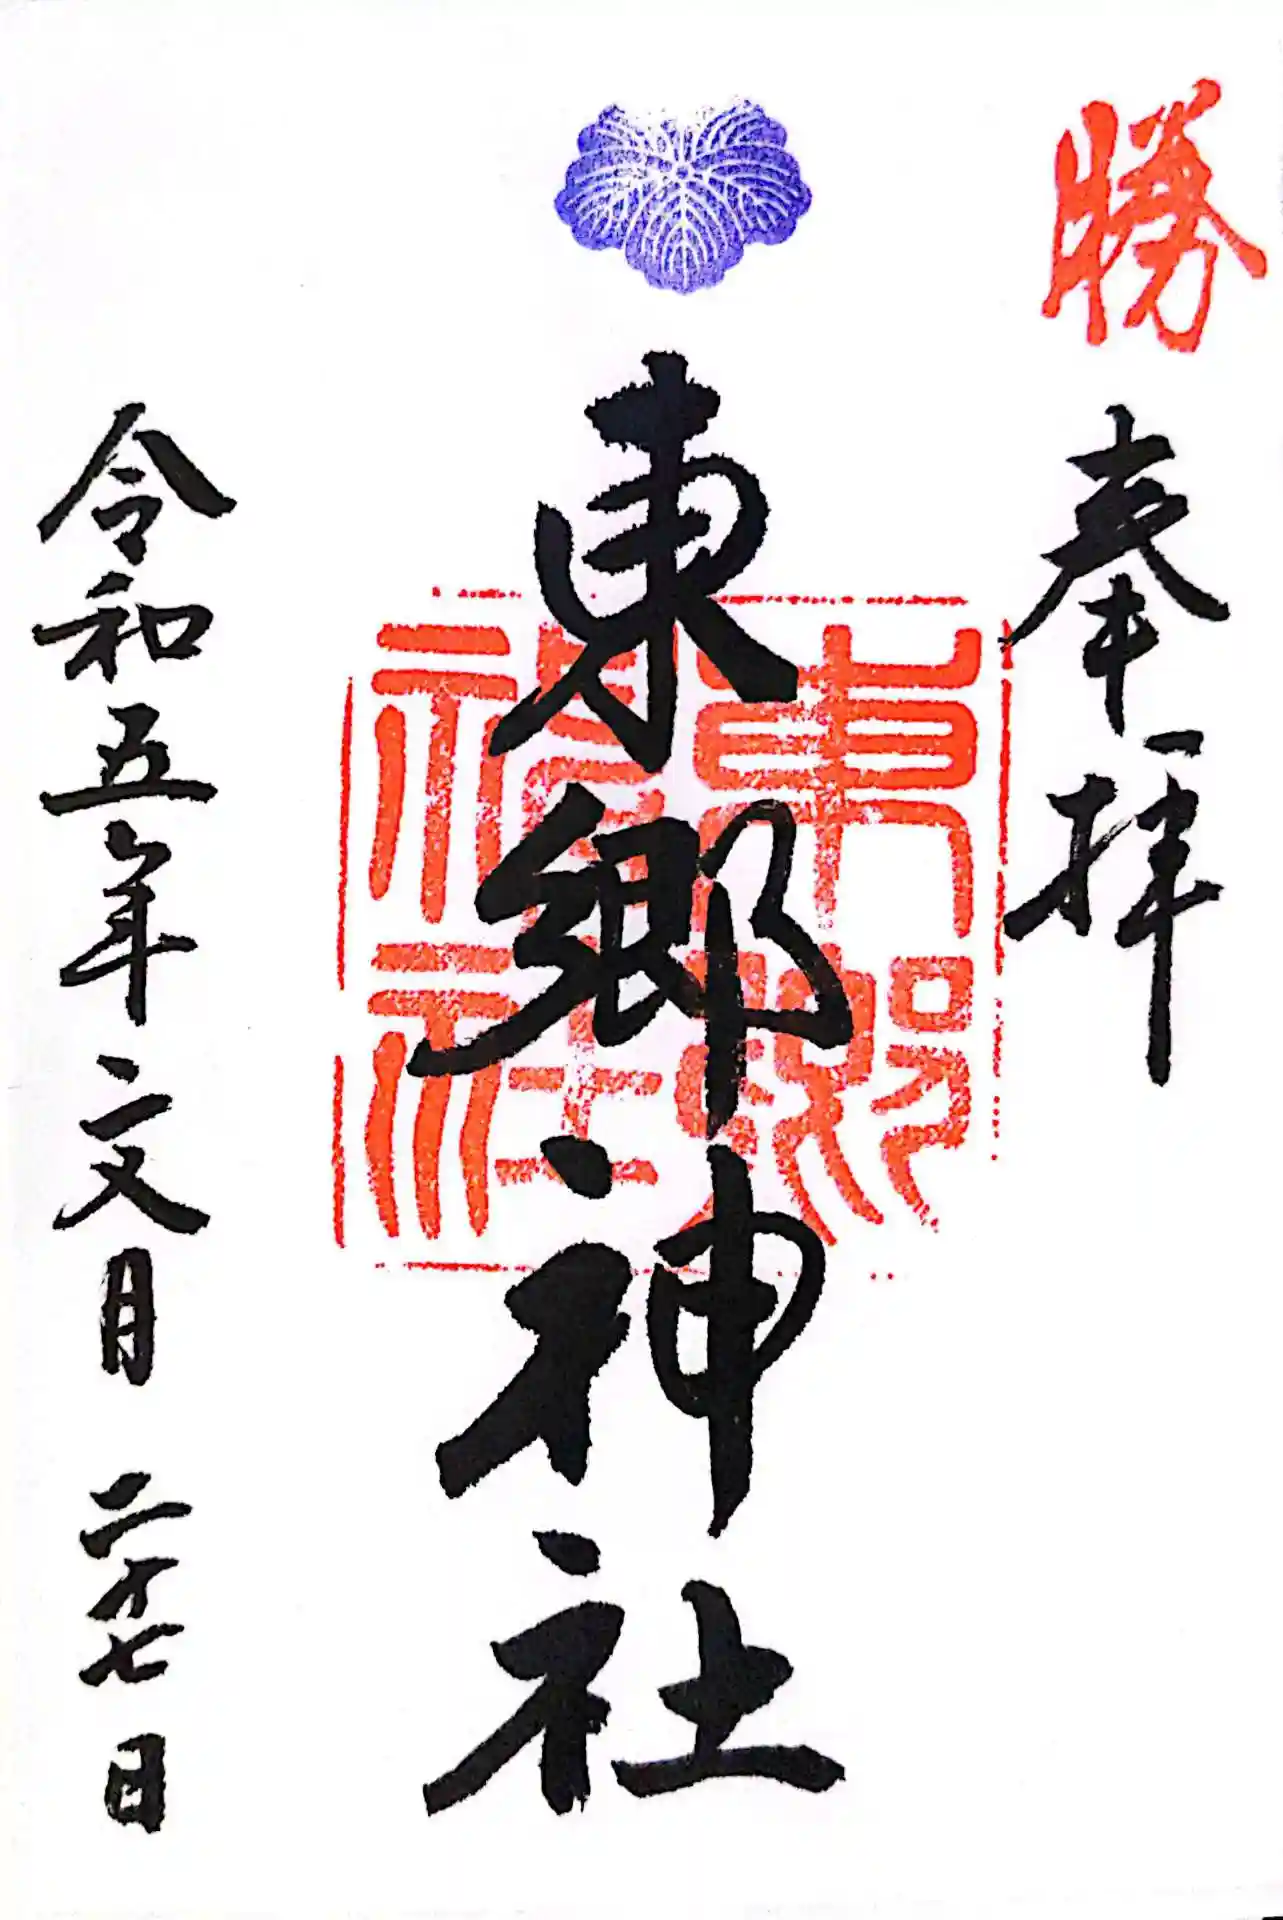 勝
奉拝
東郷神社
東郷神社
令和五年文月二十七日